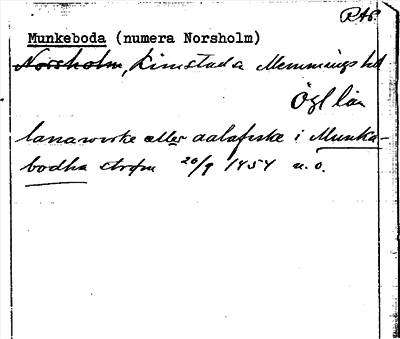 RAp.
Munkeboda (numera Norsholm)
Norsholm, Kimstada Memmings hd
Ögl län
lanawirke eller aalafiske i Munka-
bodha strøm 20/9 1454 u. o.